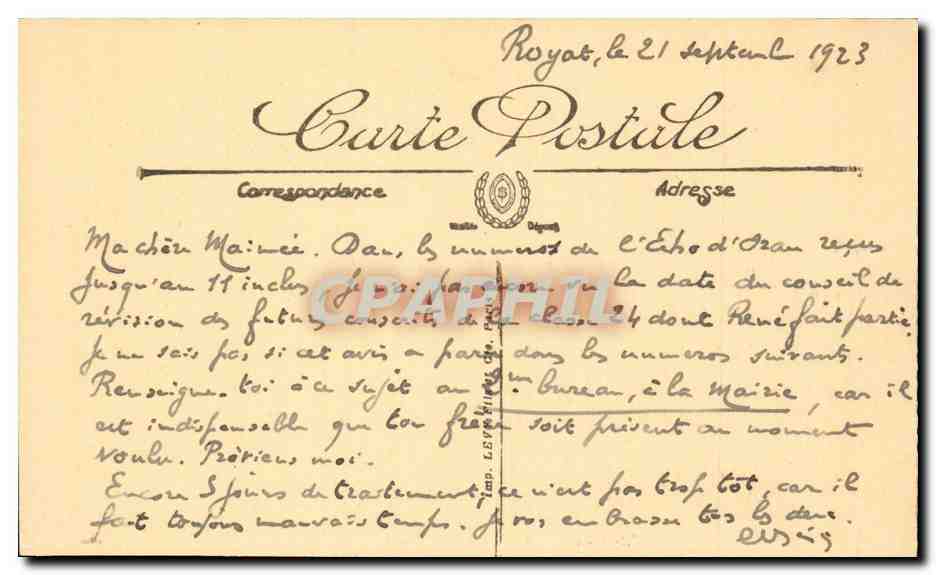 Royat, le 21 septembre 1923
Carte Postale
Correspondance
Adresse
Marque Déposée
Ma chère Maimée. Dans les numéros de l'Echo d'Oran reçus
jusqu'au 11 inclus, je n'ai pas encore vu la date du conseil de
révision des futurs conscrits de la classe 24 dont René fait partie.
Je ne sais pas si cet avis a paru dans les numéros suivants.
Renseigne-toi à ce sujet au bureau, à la Mairie, car il
est indispensable que ton frère soit présent au moment
voulu. Préviens moi.
Encore 5 jours de traitement, ce n'est pas trop tôt, car il
fait toujours mauvais temps. Je vos embrasse tos les deux.
Imp. LEVY Fils et Cie, Paris
CPAPHIL